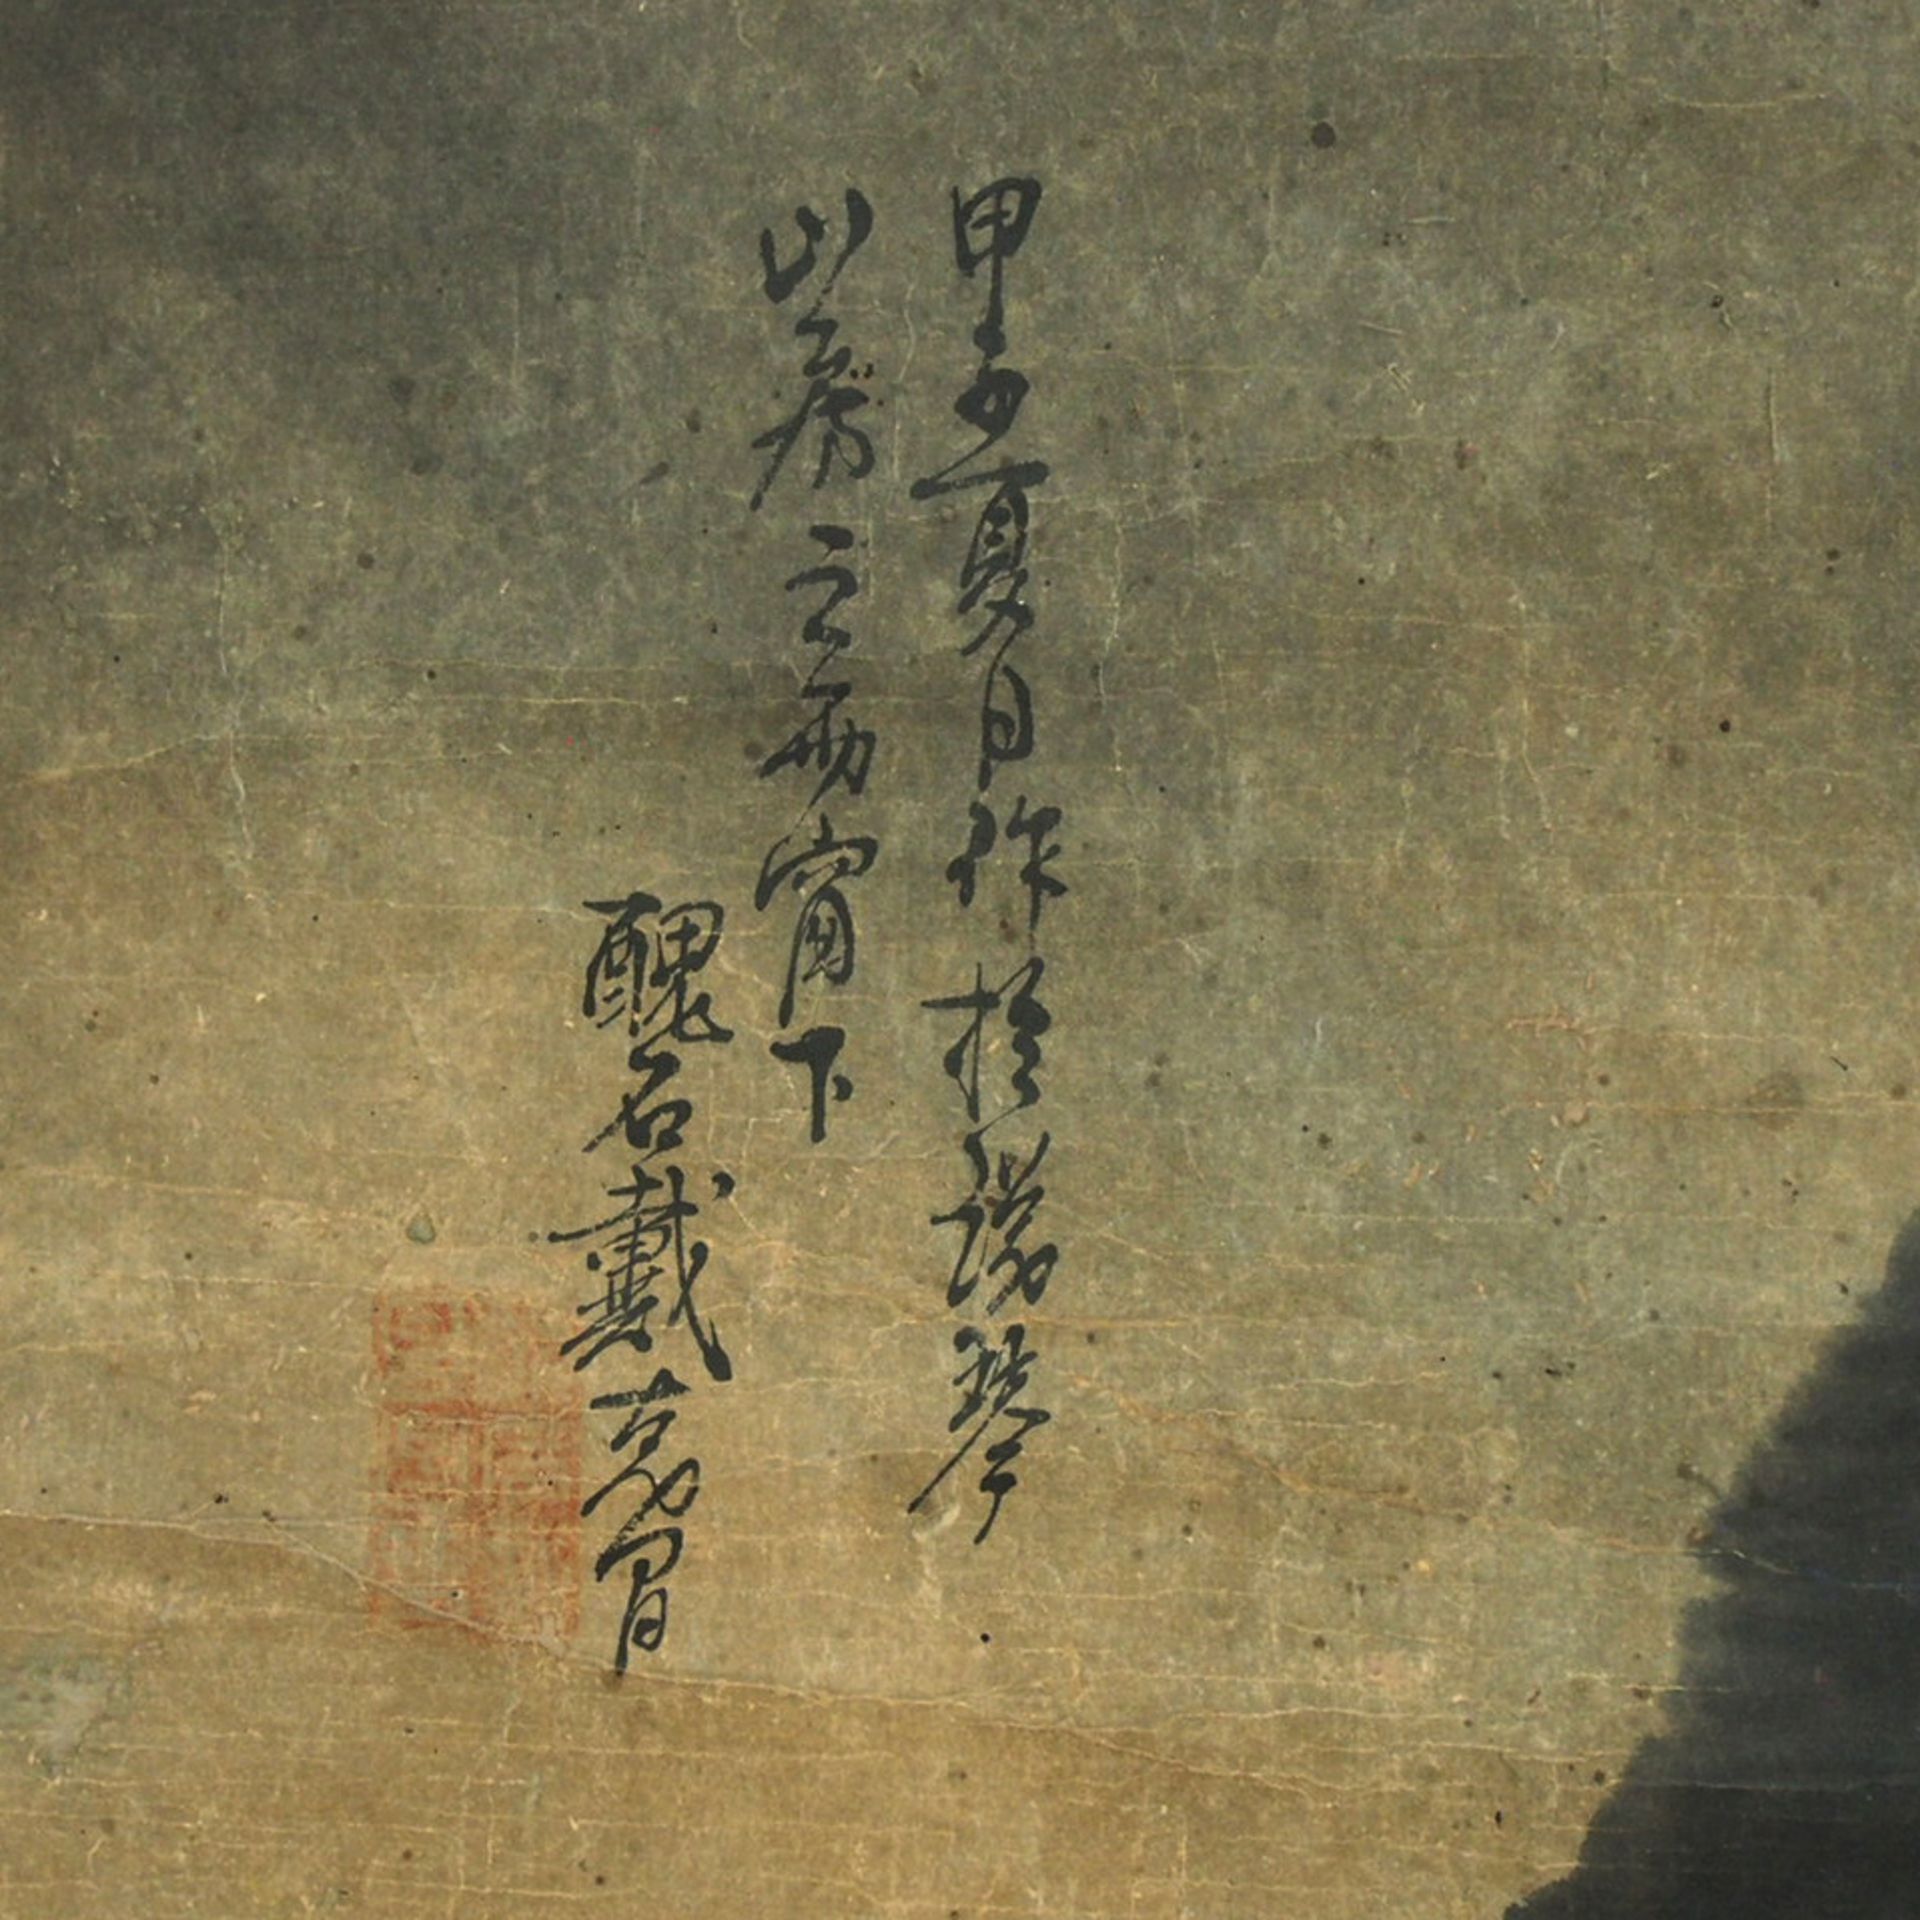 甲子夏日作於瑞琴
山房之南窗下
醜石戴嘉胄